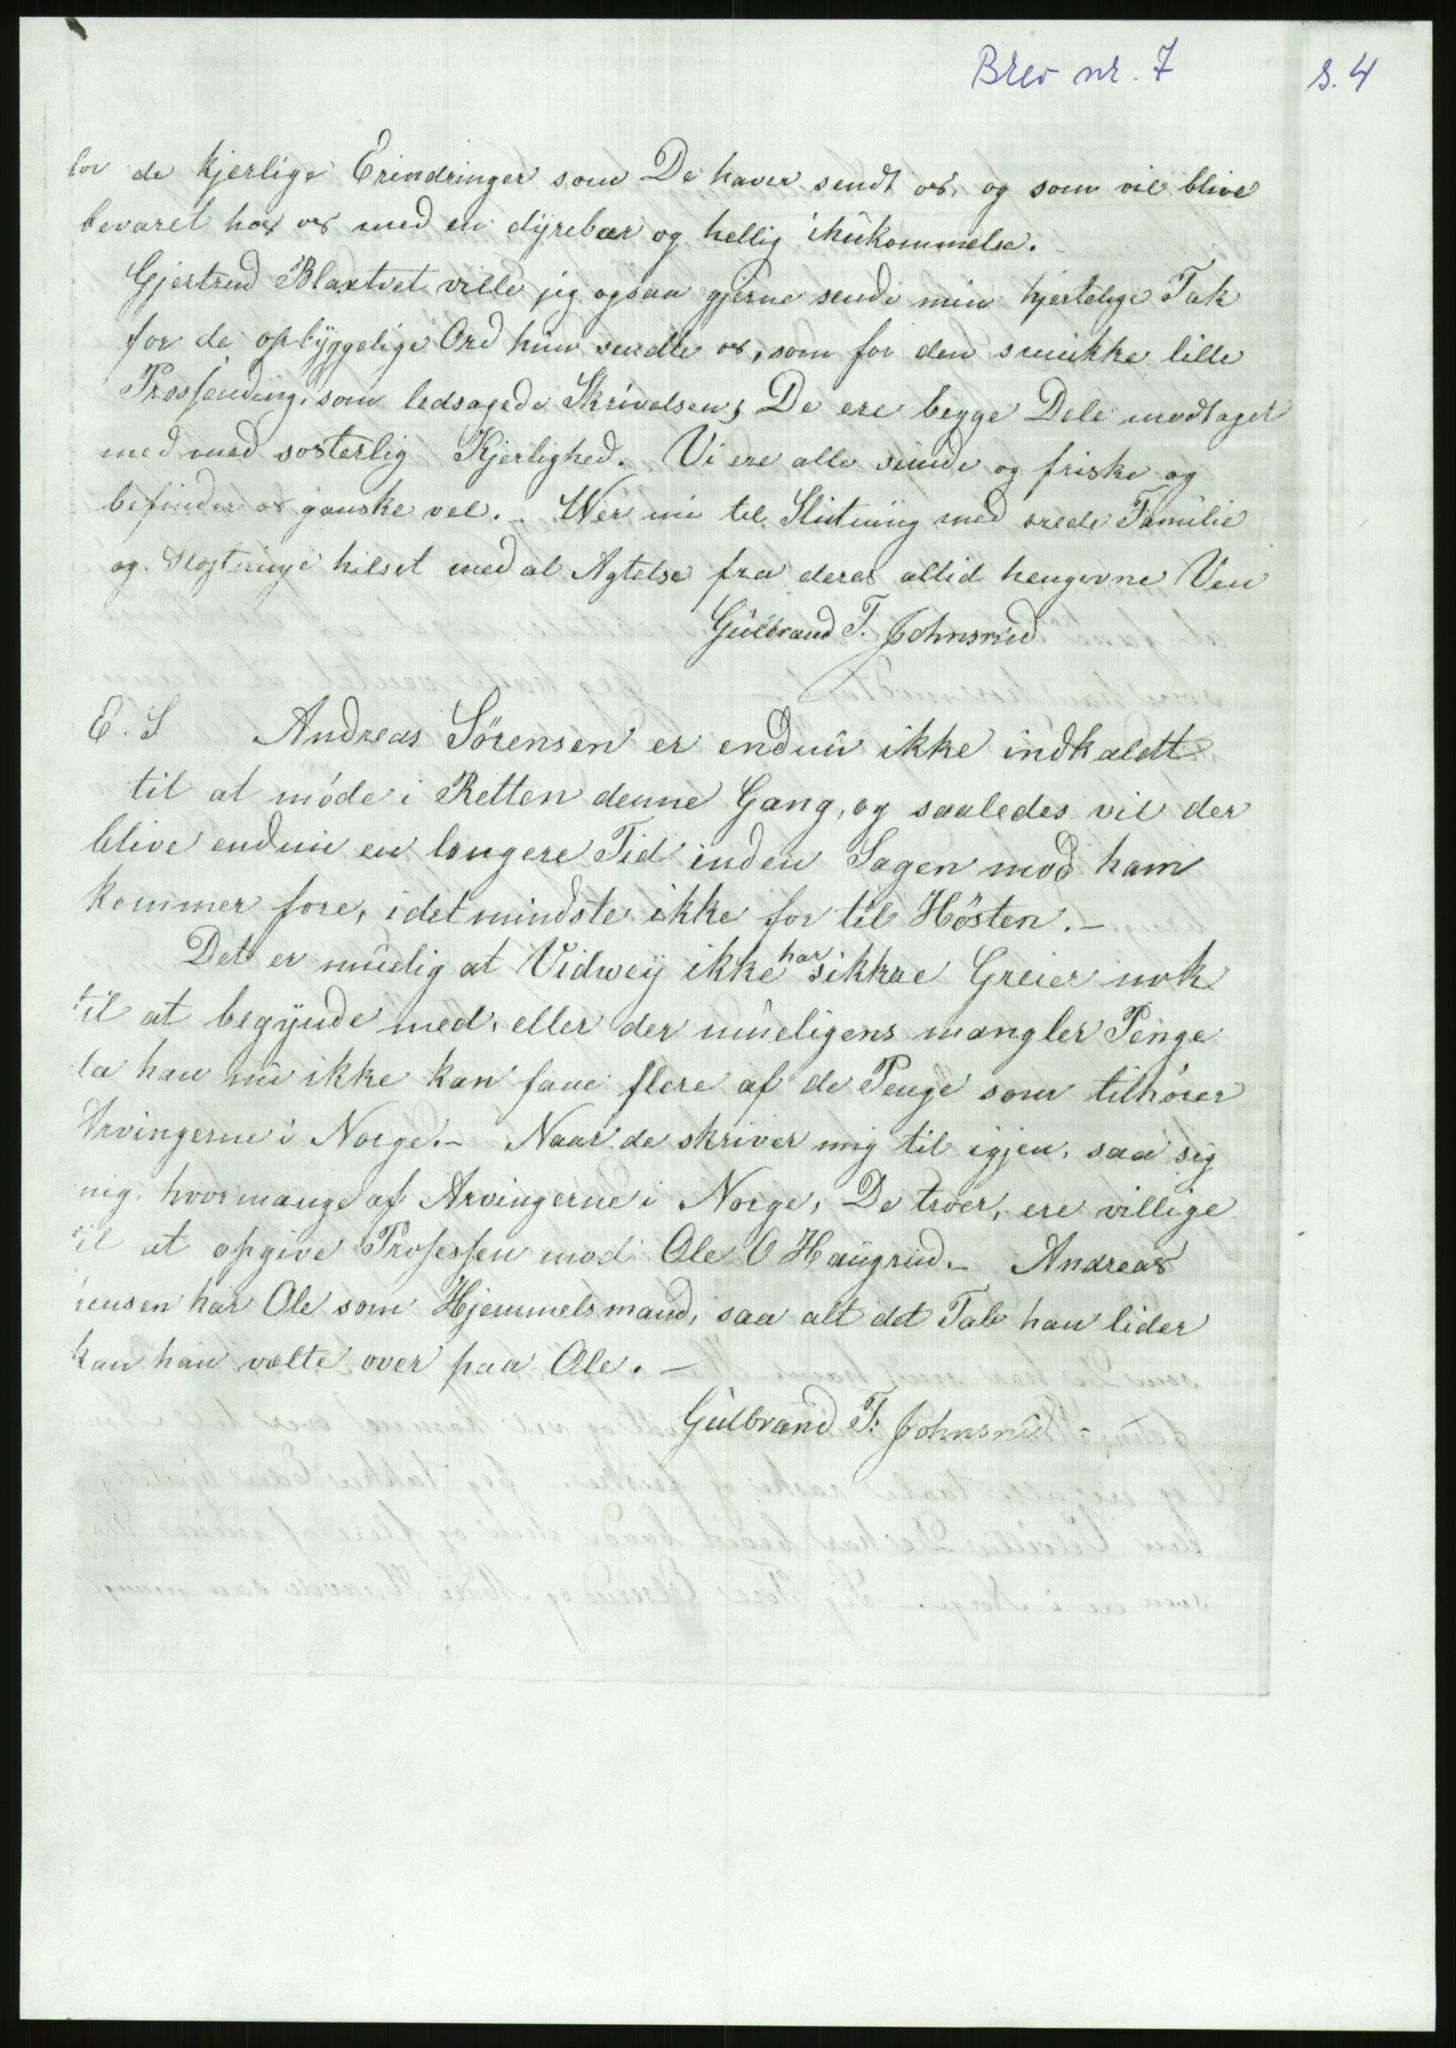 Brev nr. 7
s. 4
for de kjerlige Erindringer som De haver sendt os, og som vil blive
bevaret hos os med en dyrebar og hellig ihukommelse.
Gjertrud Blaxtvet ville jeg ogsaa gjerne sende min hjertelige Tak
for de opbyggelige Ord hun sendte os, som for den smukke lille
som ledsagede Skrivelsen, De ere begge Dele modtaget
med med sosterlig Kjerlighed. Vi ere alle sunde og friske og
befinder os ganske vel. - Wer nu til Slutning med Familie
og hilset med al Agtelse fra deres altid hengivne Ven
Gulbrand T. Johnsrud
E. S Andreas Sörensen er endnu ikke indkaldt
til at möde i Retten denne Gang, og saaledes vil der
blive endnu en longere Tid inden Sagen mod ham
kommer fore, idetmindste ikke for til Hösten. -
Det er mulig at Vidwey ikke har sikkre Greier nok
til at begynde med, eller der muligens mangler Penge
da han nu ikke kan faae flere af de Penge som tilhörer
Arvingerne i Norge. - Naar de skriver mig til igjen, saa sig
mig, hvormange af Arvingerne i Norge, De troer, ere villige
til at opgive Prosessen mod Ole O Haugrud. - Andreas
rensen har Ole som Hjemmelsmand, saa alt det Tab han lider
kan han vælte over paa Ole. -
Gulbrand T. Johnsrud -